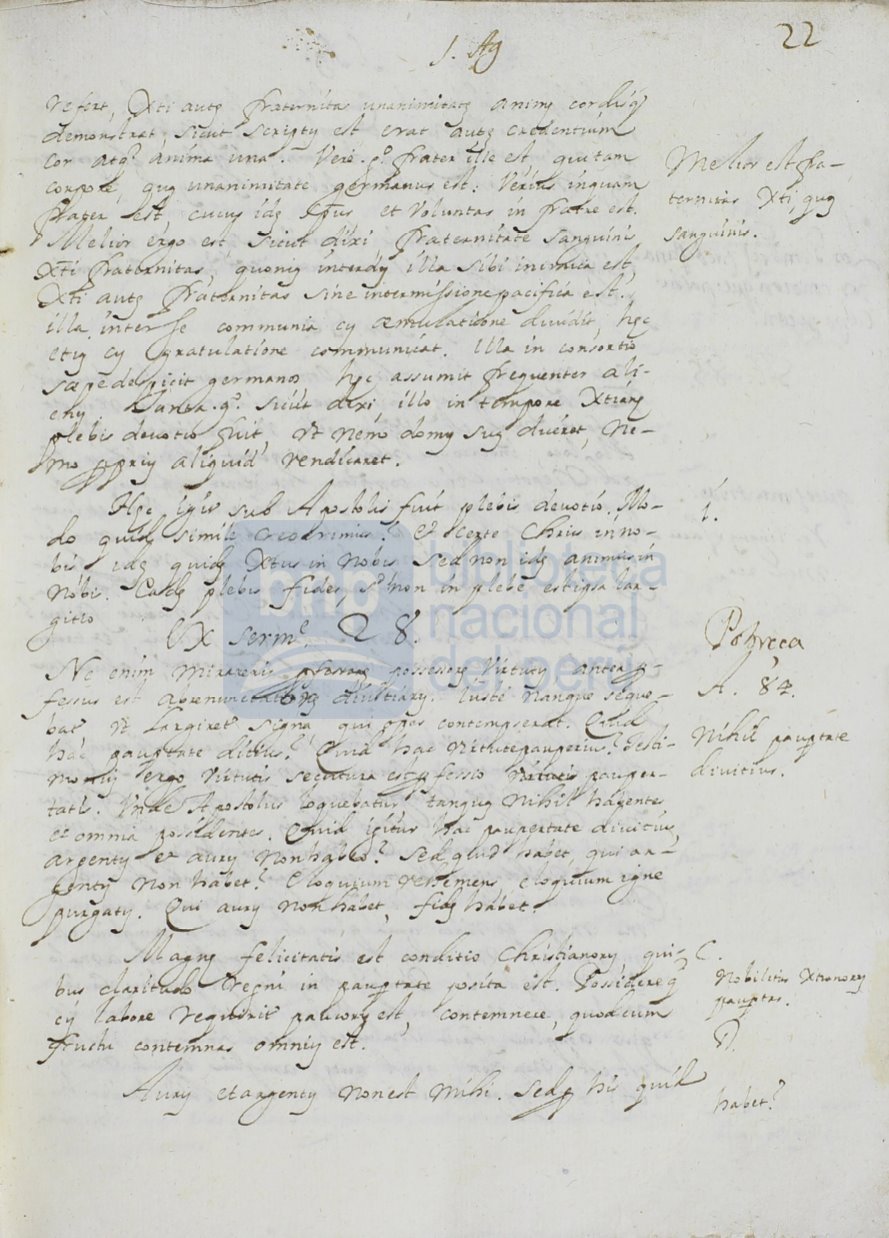 S. Ag
22
refert, Xti autę fraternitas unanimitatę animę cordisq̃
demonstrat, sicut scriptų est erat autę credentium
cor atq̃ anima una. Vere g.º frater ille est, qui tam
corpore, quą unanimitate germanus est. Verius inquam
frater est cuius idę sp̃us et voluntas in fratre est.
Melior ergo est sicut dixi, fraternitate sanguinis
Xti fraternitas, quonią interdų illa sibi inimica est,
Xti autę fraternitas sine intermissione pacifica est.
illa inter se communia cų æmulatione dividit, hęc
etią cų gratulatione communicat. Illa in consortio
sæpe despicit germanos hęc assumit frequenter ali-
enų. Tanta g.º sicut dixi, illo in tempore Xtianę
plebis devotio fuit, ut nemo domų suą diceret, ne-
mo p̱prių aliquid vendicaret.
Melior est fra-
ternitas Xti, quą
sanguinis.
Hęc igir sub Apostolis fuit plebis devotio. Mo-
do quidę simile reperimus? Et certe Chrus in no-
bis idę quidę Xtus in nobis sed non idę animus in
nobis. Eadę plebis fides, s; non in plebe est ipsa lar-
gitio
Ex serm.e 28.
Ne enim mirareris possessorę virtutų antea p̱-
fessus est abrenunciatorę divitiarų. Iuste nanque seque-
bat, ut largiret signa qui opes contempserat. Quid
hac paup̱tate ditius? Quid hac virtute pauperius? Testi-
monių ergo virtutis secutura est p̱fessio pauper-
tatis. Inde Apostolus loquebatur tanquą nihil habentes
et omnia possidentes. Quid igitur hac paupertate divitius,
argentų et aurų non habeo? Sed aliud habet, qui ar-
gentų non habet? Eloquium vehemens eloquium igne
purgatų. Qui aurų non habet, fidę habet.
Pobreça
A. 84.
Nihil paup̱tate
divitius.
Magnę felicitatis est conditio Christianorų qui-
bus claritudo regni in paup̱tate posita est. Possidere q̃
cų labore requirit paucorų est, contemnere, quod cum
fructu contemnas omnių est.
C.
Nobilitas Xtianorų
paup̱tas.
D.
Aurų et argentų non est mihi. Sed p̱ his quid
habet?